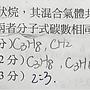 狀烷，其混合氣體共
兩者分子式碳數相同
分) C3H8, CH2
2分) C3H8, C3H
3分) 2=3.